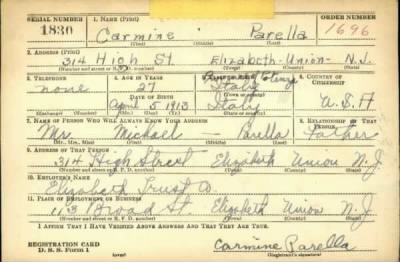 SERIAL NUMBER 1. NAME (Print) ORDER NUMBER
1830 Carmine Parella 1696
(First) (Middle) (Last)
2. ADDRESS (Print)
314 High St. Elizabeth - Union - N.J.
(Number and street or R. F. D. number) (Town) (County) (State)
3. TELEPHONE 4. AGE IN YEARS 5. PLACE OF BIRTH 6. COUNTRY OF CITIZENSHIP
none 27 Italy
DATE OF BIRTH
April 5 1913 Italy U.S.A
(Exchange) (Number) (Mo.) (Day) (Yr.) (State or country)
7. NAME OF PERSON WHO WILL ALWAYS KNOW YOUR ADDRESS 8. RELATIONSHIP OF THAT PERSON
Mr. Michael — Father
(Mr., Mrs., Miss) (First) (Middle) (Last)
9. ADDRESS OF THAT PERSON
314 High Street Elizabeth Union N.J.
(Number and street or R. F. D. number) (Town) (County) (State)
10. EMPLOYER'S NAME
Elizabeth Trust Co.
11. PLACE OF EMPLOYMENT OR BUSINESS
113 Broad St. Elizabeth Union N.J.
(Number and street or R. F. D. number) (Town) (County) (State)
I AFFIRM THAT I HAVE VERIFIED ABOVE ANSWERS AND THAT THEY ARE TRUE.
REGISTRATION CARD
D. S. S. Form 1 Carmine Parella
(Registrant's signature)